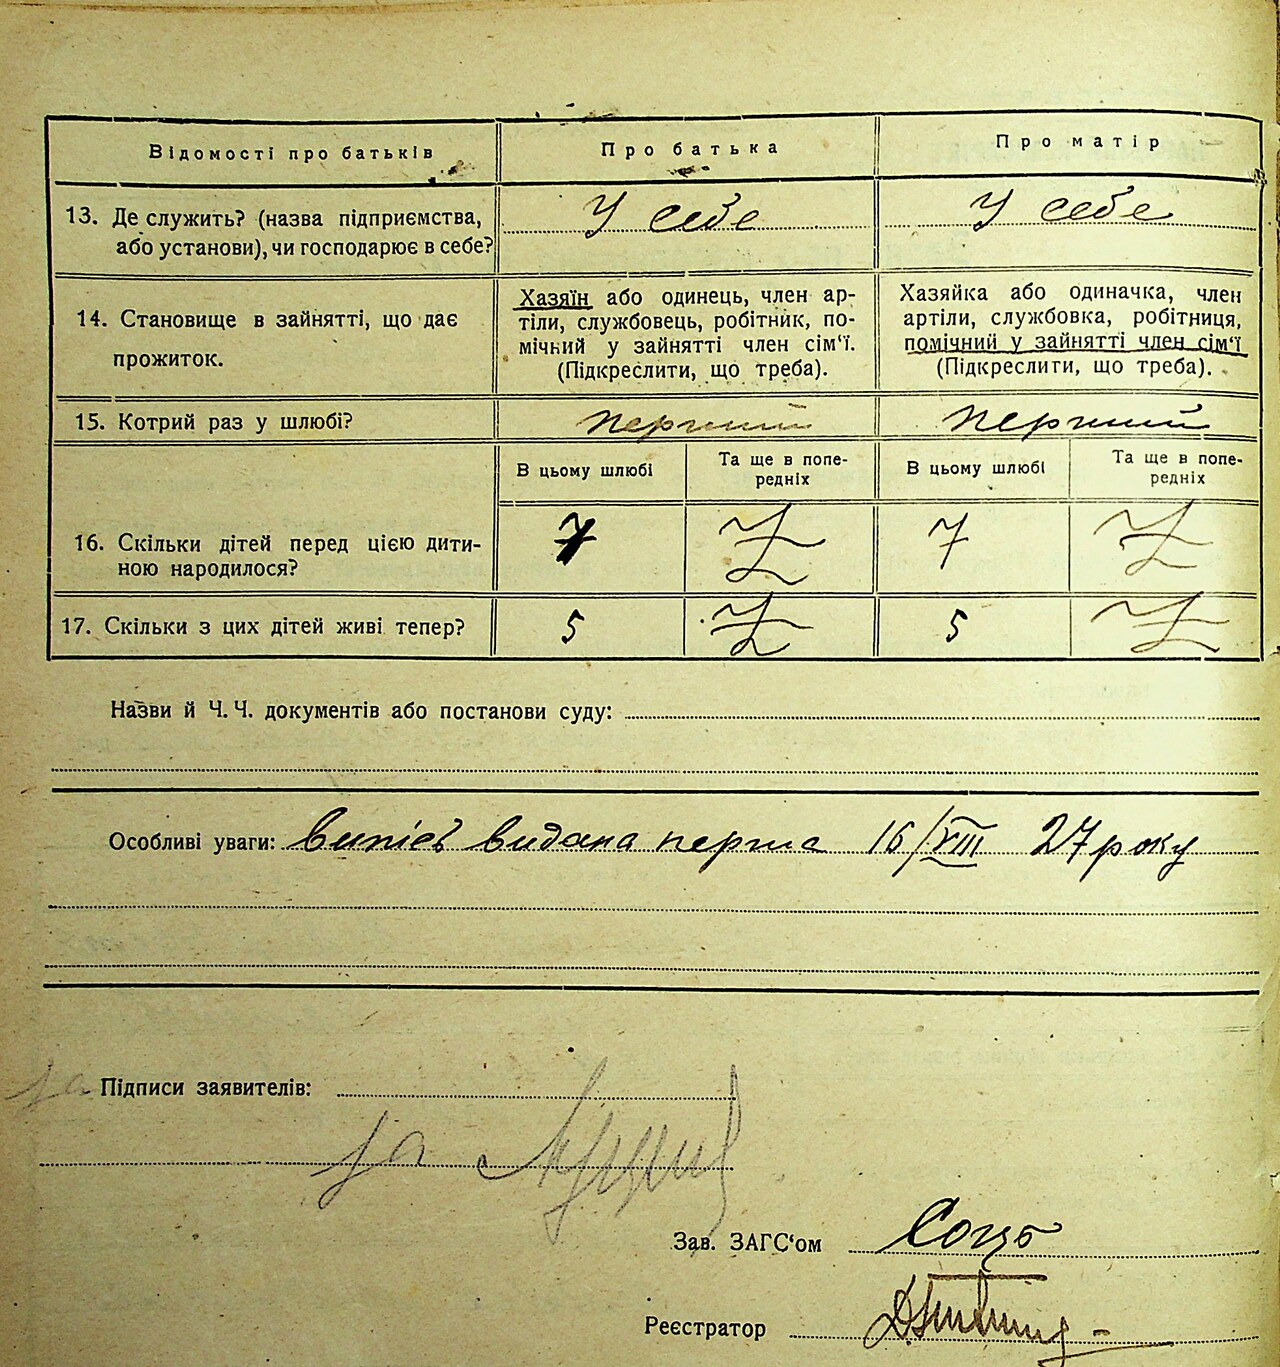 Відомості про батьків
Про батька
Про матір
13. Де служить? (назва підприємства,
або установи), чи господарює в себе?
У себе
У себе
14. Становище в зайнятті, що дає
прожиток.
Хазяїн або одинець, член ар-
тіли, службовець, робітник, по-
мічний у зайнятті член сім'ї.
(Підкреслити, що треба).
Хазяйка або одиначка, член
артіли, службовка, робітниця,
помічний у зайнятті член сім'ї
(Підкреслити, що треба).
15. Котрий раз у шлюбі?
перший
перший
В цьому шлюбі
Та ще в попе-
редніх
В цьому шлюбі
Та ще в попе-
редніх
16. Скільки дітей перед цією дити-
ною народилося?
7
7
17. Скільки з цих дітей живі тепер?
5
5
Назви й Ч. Ч. документів або постанови суду:
Особливі уваги: випісь видана перша 16/VIII 27 року
за Підписи заявителів:
за
Зав. ЗАГС'ом
Реєстратор